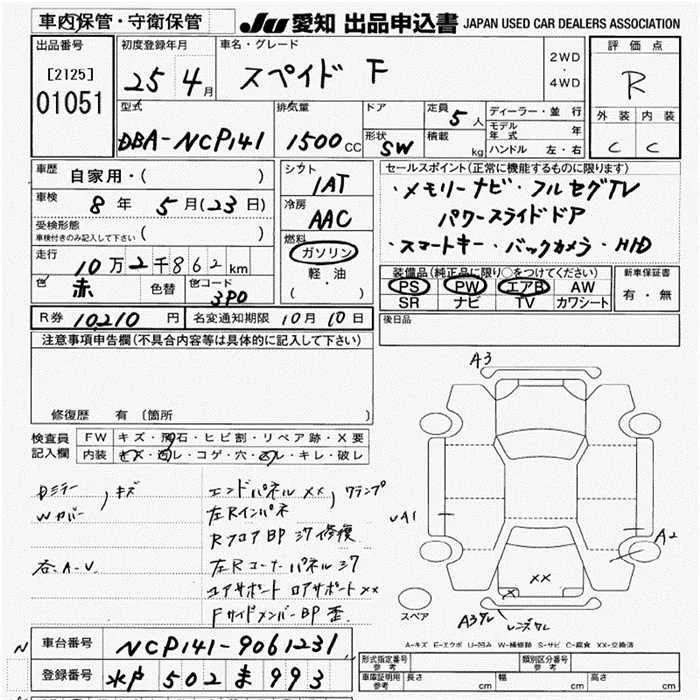 車内保管・守衛保管
JU 愛知 出品申込書 JAPAN USED CAR DEALERS ASSOCIATION
出品番号 初度登録年月 車名・グレード 2WD・4WD 評価点
[2125] 25 4月 スペイド F R
01051
型式 排気量 ドア 定員 5人 ディーラー・並行 外装 内装
モデル年式 年
DBA-NCP141 1500CC 形状 SW 積載 kg ハンドル 左・右 C C
車歴 自家用・( ) シフト セールスポイント(正常に機能するものに限ります)
1AT ・メモリーナビ・フルセグTV
車検 8年 5月(23日) 冷房 パワースライドドア
受検形態 車検付きのみ記入して下さい ( ) AAC ・スマートキー・バックカメラ・HID
走行 10万2千862km 燃料 ガソリン 装備品(純正品に限り○をつけてください) 新車保証書
色 赤 色替 色コード 3P0 軽油 PS PW エアB AW 有・無
( ) SR ナビ TV カワシート
R券 10,210円 名変通知期限 10月10日 後日品
注意事項申告欄(不具合内容等は具体的に記入して下さい)
修復歴 有 〔箇所 〕
検査員記入欄 FW キズ・飛石・ヒビ割・リペア跡・X要
内装 キズ・汚レ・コゲ・穴・スレ・キレ・破レ
Dミラー, キズ エンドパネルXX, クランプ
Wカバー 左Rインパネ
Rフロア BP ヨケ修復
各A-U. 左Rコーナーパネル ヨケ
コアサポート ロアサポートXX
Fサイドメンバー BP 歪
A3
UA1
A2
XX
X
スペア A3
A-キズ E-エクボ U-凹み W-補修跡 S-サビ C-腐食 XX-交換済
車台番号 NCP141-9061231
登録番号 水戸 502 ま 993
形式指定番号 類別区分番号
車庫証明用参考欄 長さ cm 幅 cm 高さ cm